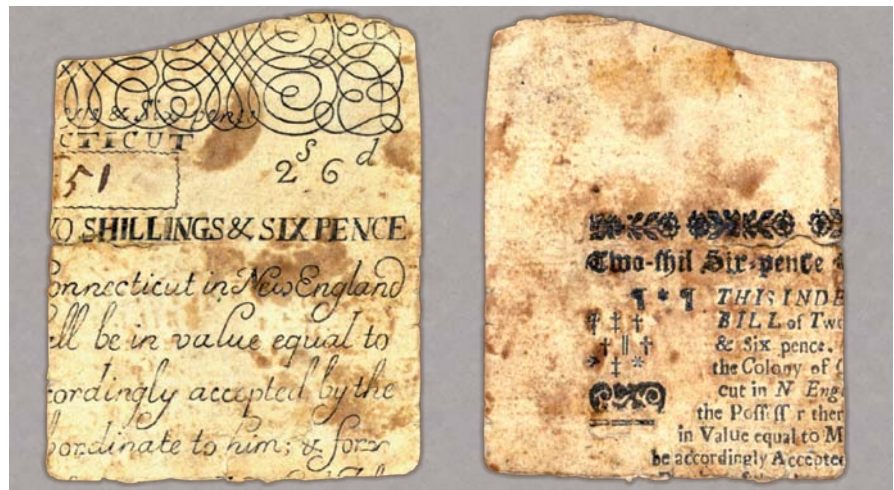 & Six pence
CTICUT
51
2ˢ 6ᵈ
O SHILLINGS & SIX PENCE
onnecticut in New England
ll be in value equal to
cordingly accepted by the
ordinate to him; & for
Two-shil Six-pence
¶ * ¶ THIS INDE
‡ ‡ † BILL of Two
† ‖ † & Six pence.
‡ * the Colony of C
cut in N Eng
the Poss ss r ther
in Value equal to M
be accordingly Accepte